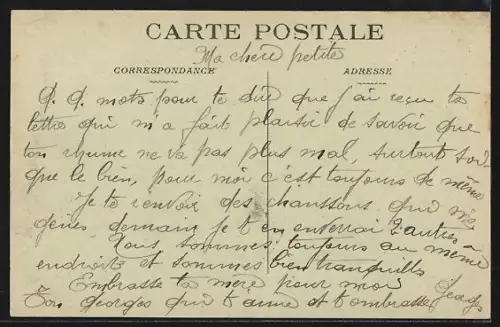 CARTE POSTALE
Ma chere petite
CORRESPONDANCE
ADRESSE
q. q. mots pour te dire que j'ai reçu ta
lettre qui m'a fait plaisir de savoir que
ton rhume ne va pas plus mal, surtout
que le bien, pour moi c'est toujours de même
Je te renvoie des chaussons qui
demain je t'en enverrai 2 autres
Nous sommes toujours au meme
endroit et sommes bien tranquilles
Embrasse ta mère pour moi
Ton Georges qui t'aime et t'embrasse Georges